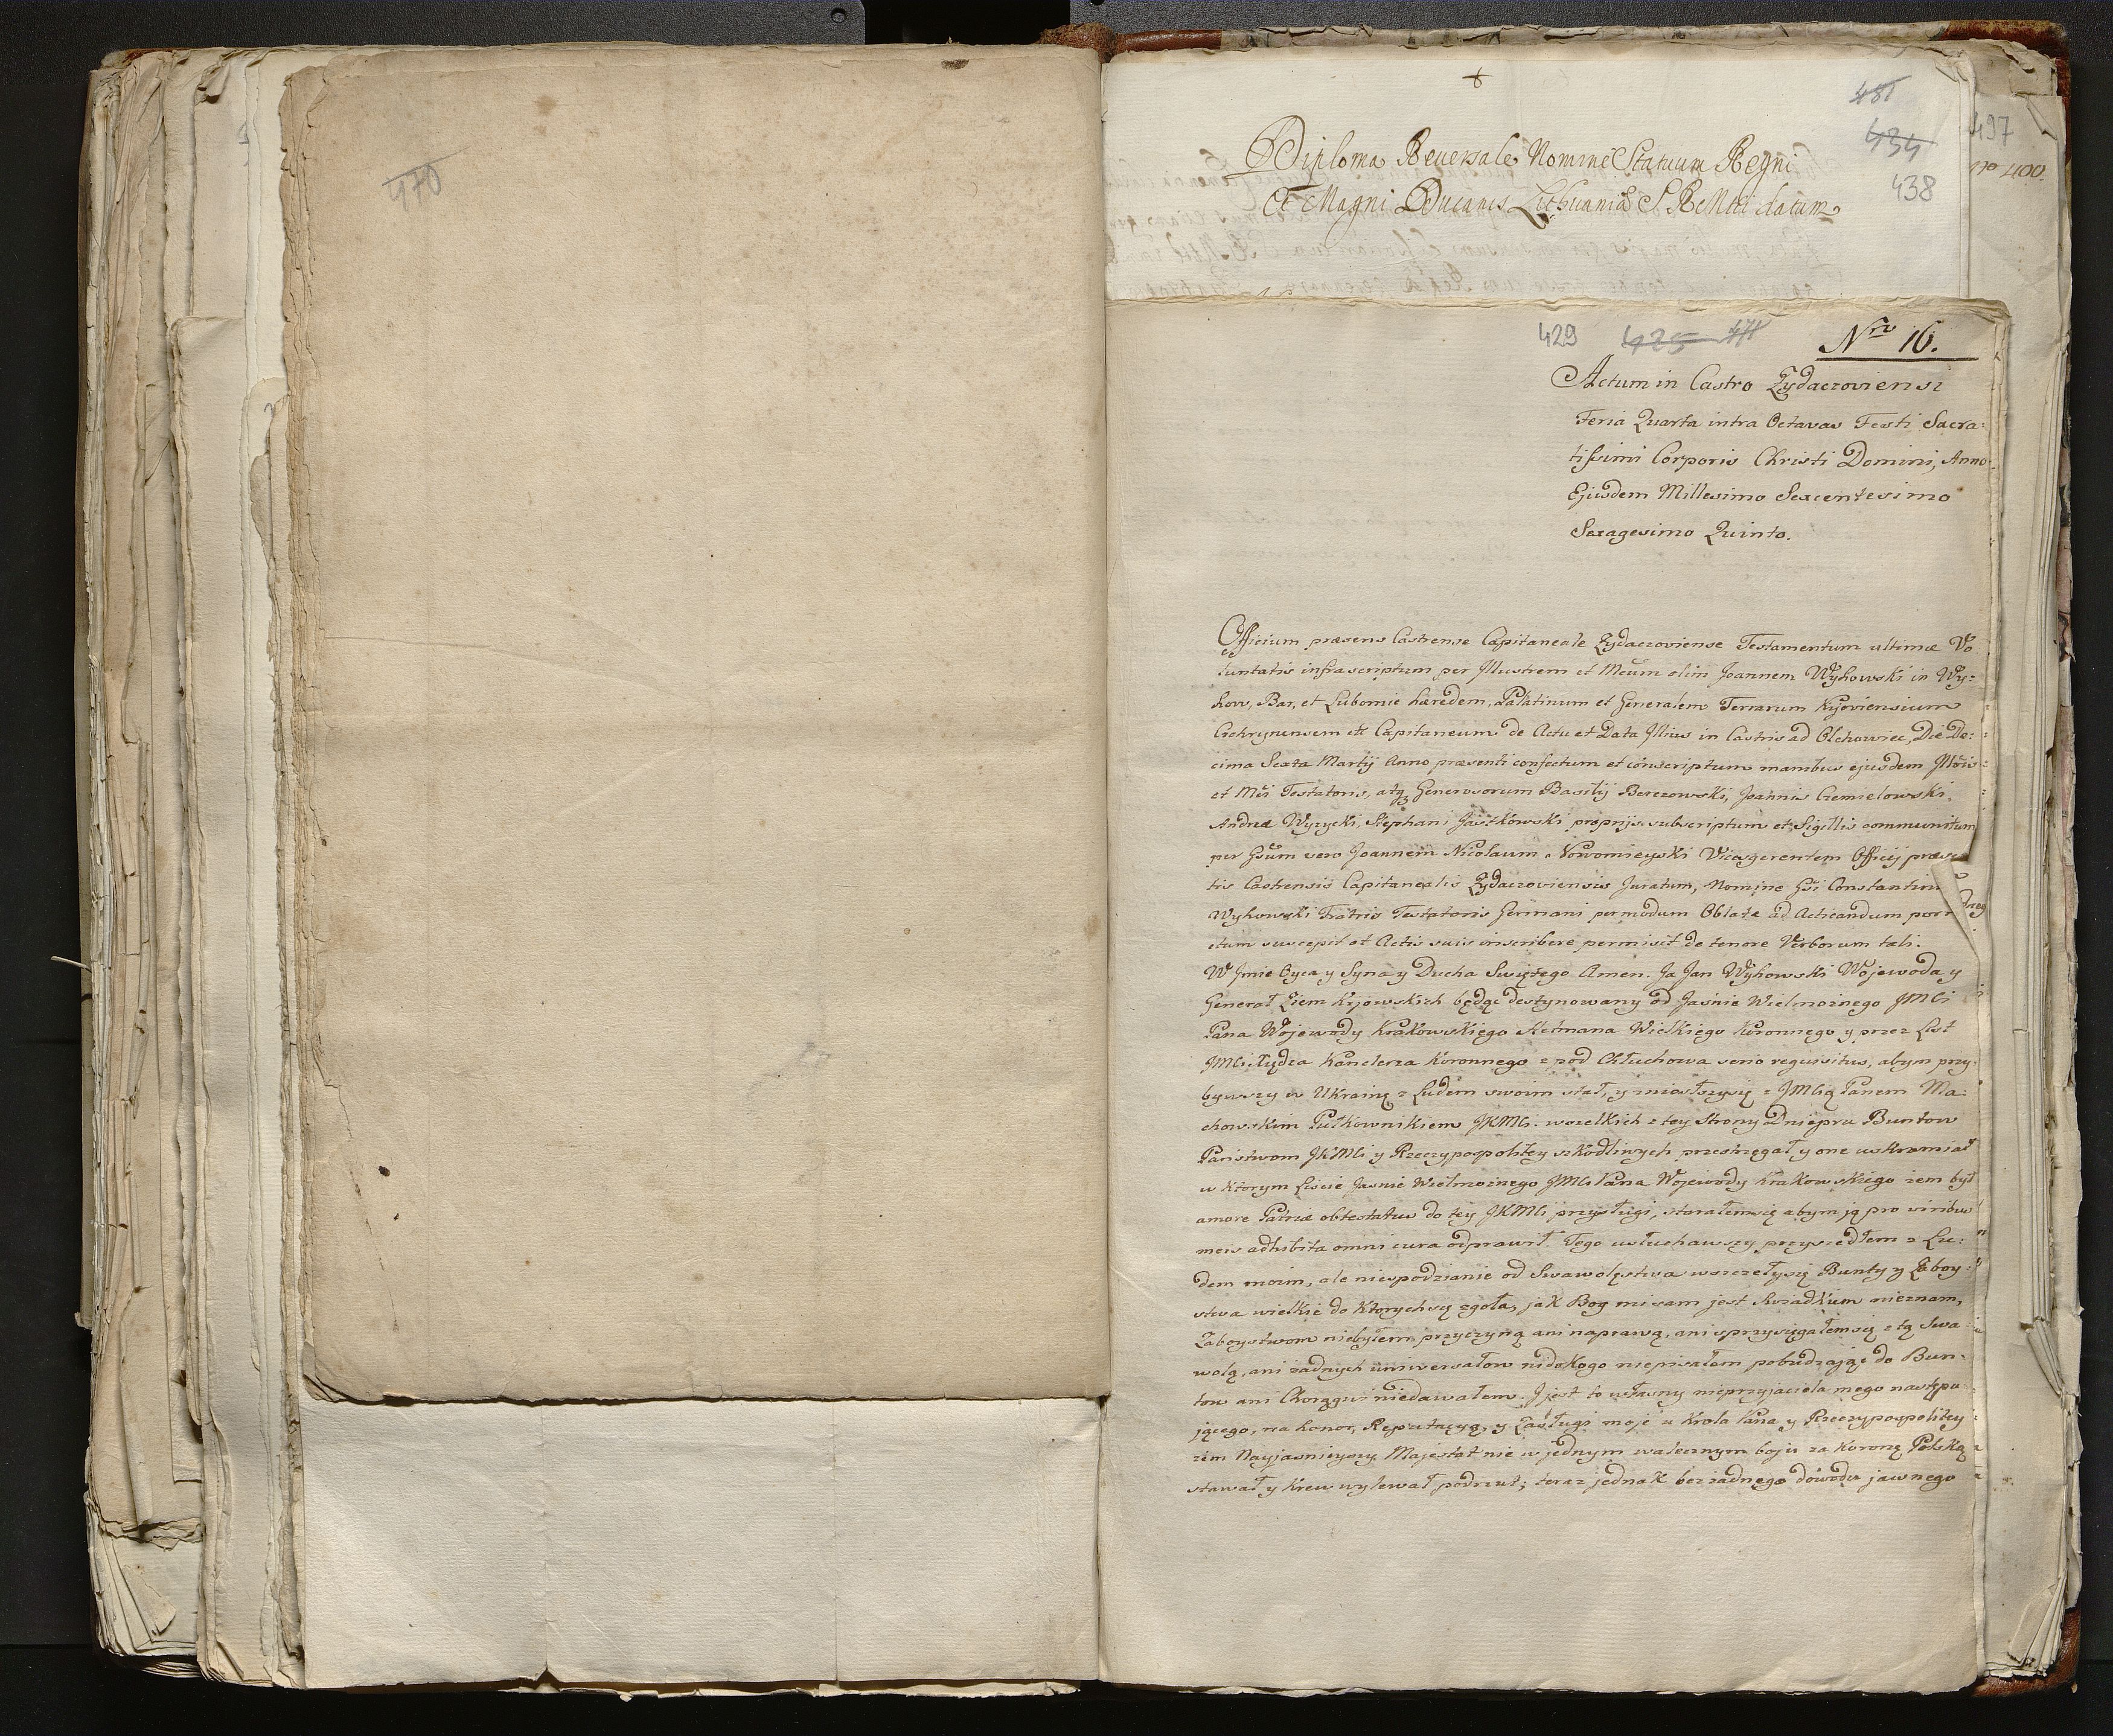 470
Diploma Reversale Nomine Statuum Regni
Et Magni Ducatus Lithuaniæ S R Mtti datum
481
434
438
497
400
429 425 471
Nro 16.
Actum in Castro Zydaczoviensi
Feria Quarta intra Octavas Festi Sacra:
tissimi Corporis Christi Domini, Anno
Ejusdem Millesimo Sexcentesimo
Sexagesimo Quinto.
Officium præsens Castrense Capitaneale Zydaczoviense Testamentum ultimæ Vo
luntatis infrascriptum per Illustrem et Mcum olim Joannem Wyhowski in Wy:
how, Bar, et Lubomie hæredem, Palatinum et Generalem Terrarum Kijoviensium
Czehrynensem etc Capitaneum de Actu et Data Illius in Castris ad Olchowiec, Die De:
cima Sexta Martij Anno præsenti confectum et conscriptum manibus ejusdem Illris
et Mci Testatoris, atq Generosorum Basilij Berezowski, Joannis Czemielowski,
Andreæ Wyzycki, Stephani Jastkowski proprijs subscriptum et Sigillis communitum
per Gsum vero Joannem Nicolaum Nowomieyski Vicesgerentem Officij præs
tis Castrensis Capitanealis Zydaczoviensis Juratum, Nomine Gsi Constantini
Wyhowski Fratris Testatoris Germani per modum Oblatæ ad Acticandum porr
ctum suscepit et Actis suis inscribere permisit de tenore Verborum tali.
W Jmie Oyca y Syna y Ducha Swiętego Amen. Ja Jan Wyhowski Wojewoda y
Generał Ziem Kijowskich będąc destynowany od Jaśnie Wielmożnego JMCi
Pana Wojewody Krakowskiego Hetmana Wielkiego Koronnego y przez List
JMCi Xiędza Kanclerza Koronnego z pod Głuchowa serio requisitus, abym przy:
bywszy w Ukrainę z Ludem swoim stał, y zniosłszysię z JMCią Panem Ma:
chowskim Pułkownikiem JKMCi: wszelkich z tey Strony Dniepru Buntow
Państwom JKMCi y Rzeczypospolitey szkodliwych przestrzegał y one uskromiał
w ktorym Liście Jasnie Wielmożnego JMCi Pana Wojewody Krakowskiego żem był
amore Patriæ obtestatus do tey JKMCi przysługi, starałemsię abym ją pro viribus
meis adhibita omni cura odprawił. Tego usłuchawszy przyszedłem z Lu:
dem moim, ale niespodzianie od Swawolęstwa wszczełysię Bunty y Zaboy:
stwa wielkie do ktorychsię zgoła, jak Bog mi sam jest Swiadkiem nieznam,
Zaboystwom niebyłem przyczyną ani naprawą, ani sprzysięgałemsię z tą Swa
wolą, ani żadnych uniwersałow nidokogo niepisałem pobudzając do Bun:
tow ani Chorągwi niedawałem. I jest to własny nieprzyjaciela mego nastepu
jącego, na honor, Reputacyą, y Zasługi moje u Krola Pana y Rzeczypospolitey
zem Nayjasnieyszy Majestat nie w jednym walecznym boju za Koronę Polską
stawał y Krew wylewał podrzut; teraz jednak bez żadnego dowodu jawnego